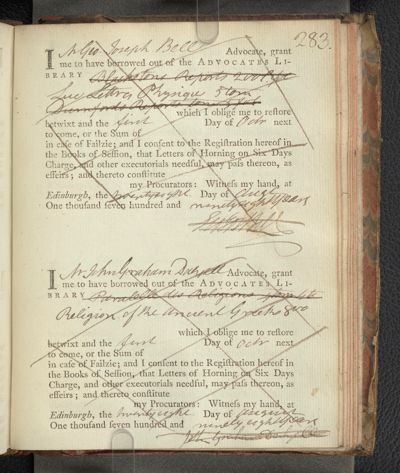 283.
I Mr Geo Joseph Bell Advocate, grant
me to have borrowed out of the ADVOCATES LI-
BRARY Blackstons Reports 2 vol
Lettres Physique 5 tom
Durnfords Reports
which I oblige me to restore
betwixt and the first Day of Octr next
to come, or the Sum of
in case of Failzie; and I consent to the Registration hereof in
the Books of Session, that Letters of Horning on Six Days
Charge, and other executorials needful, may pass thereon, as
effeirs; and thereto constitute
my Procurators: Witness my hand, at
Edinburgh, the twentyeight Day of August
One thousand seven hundred and ninetyeight years
I Mr John Graham Dalyell Advocate, grant
me to have borrowed out of the ADVOCATES LI-
BRARY Religions
Religion of the Ancient Greeks 8vo
which I oblige me to restore
betwixt and the first Day of Octr next
to come, or the Sum of
in case of Failzie; and I consent to the Registration hereof in
the Books of Session, that Letters of Horning on Six Days
Charge, and other executorials needful, may pass thereon, as
effeirs; and thereto constitute
my Procurators: Witness my hand, at
Edinburgh, the twentyeight Day of August
One thousand seven hundred and ninetyeight years
John Graham Dalyell